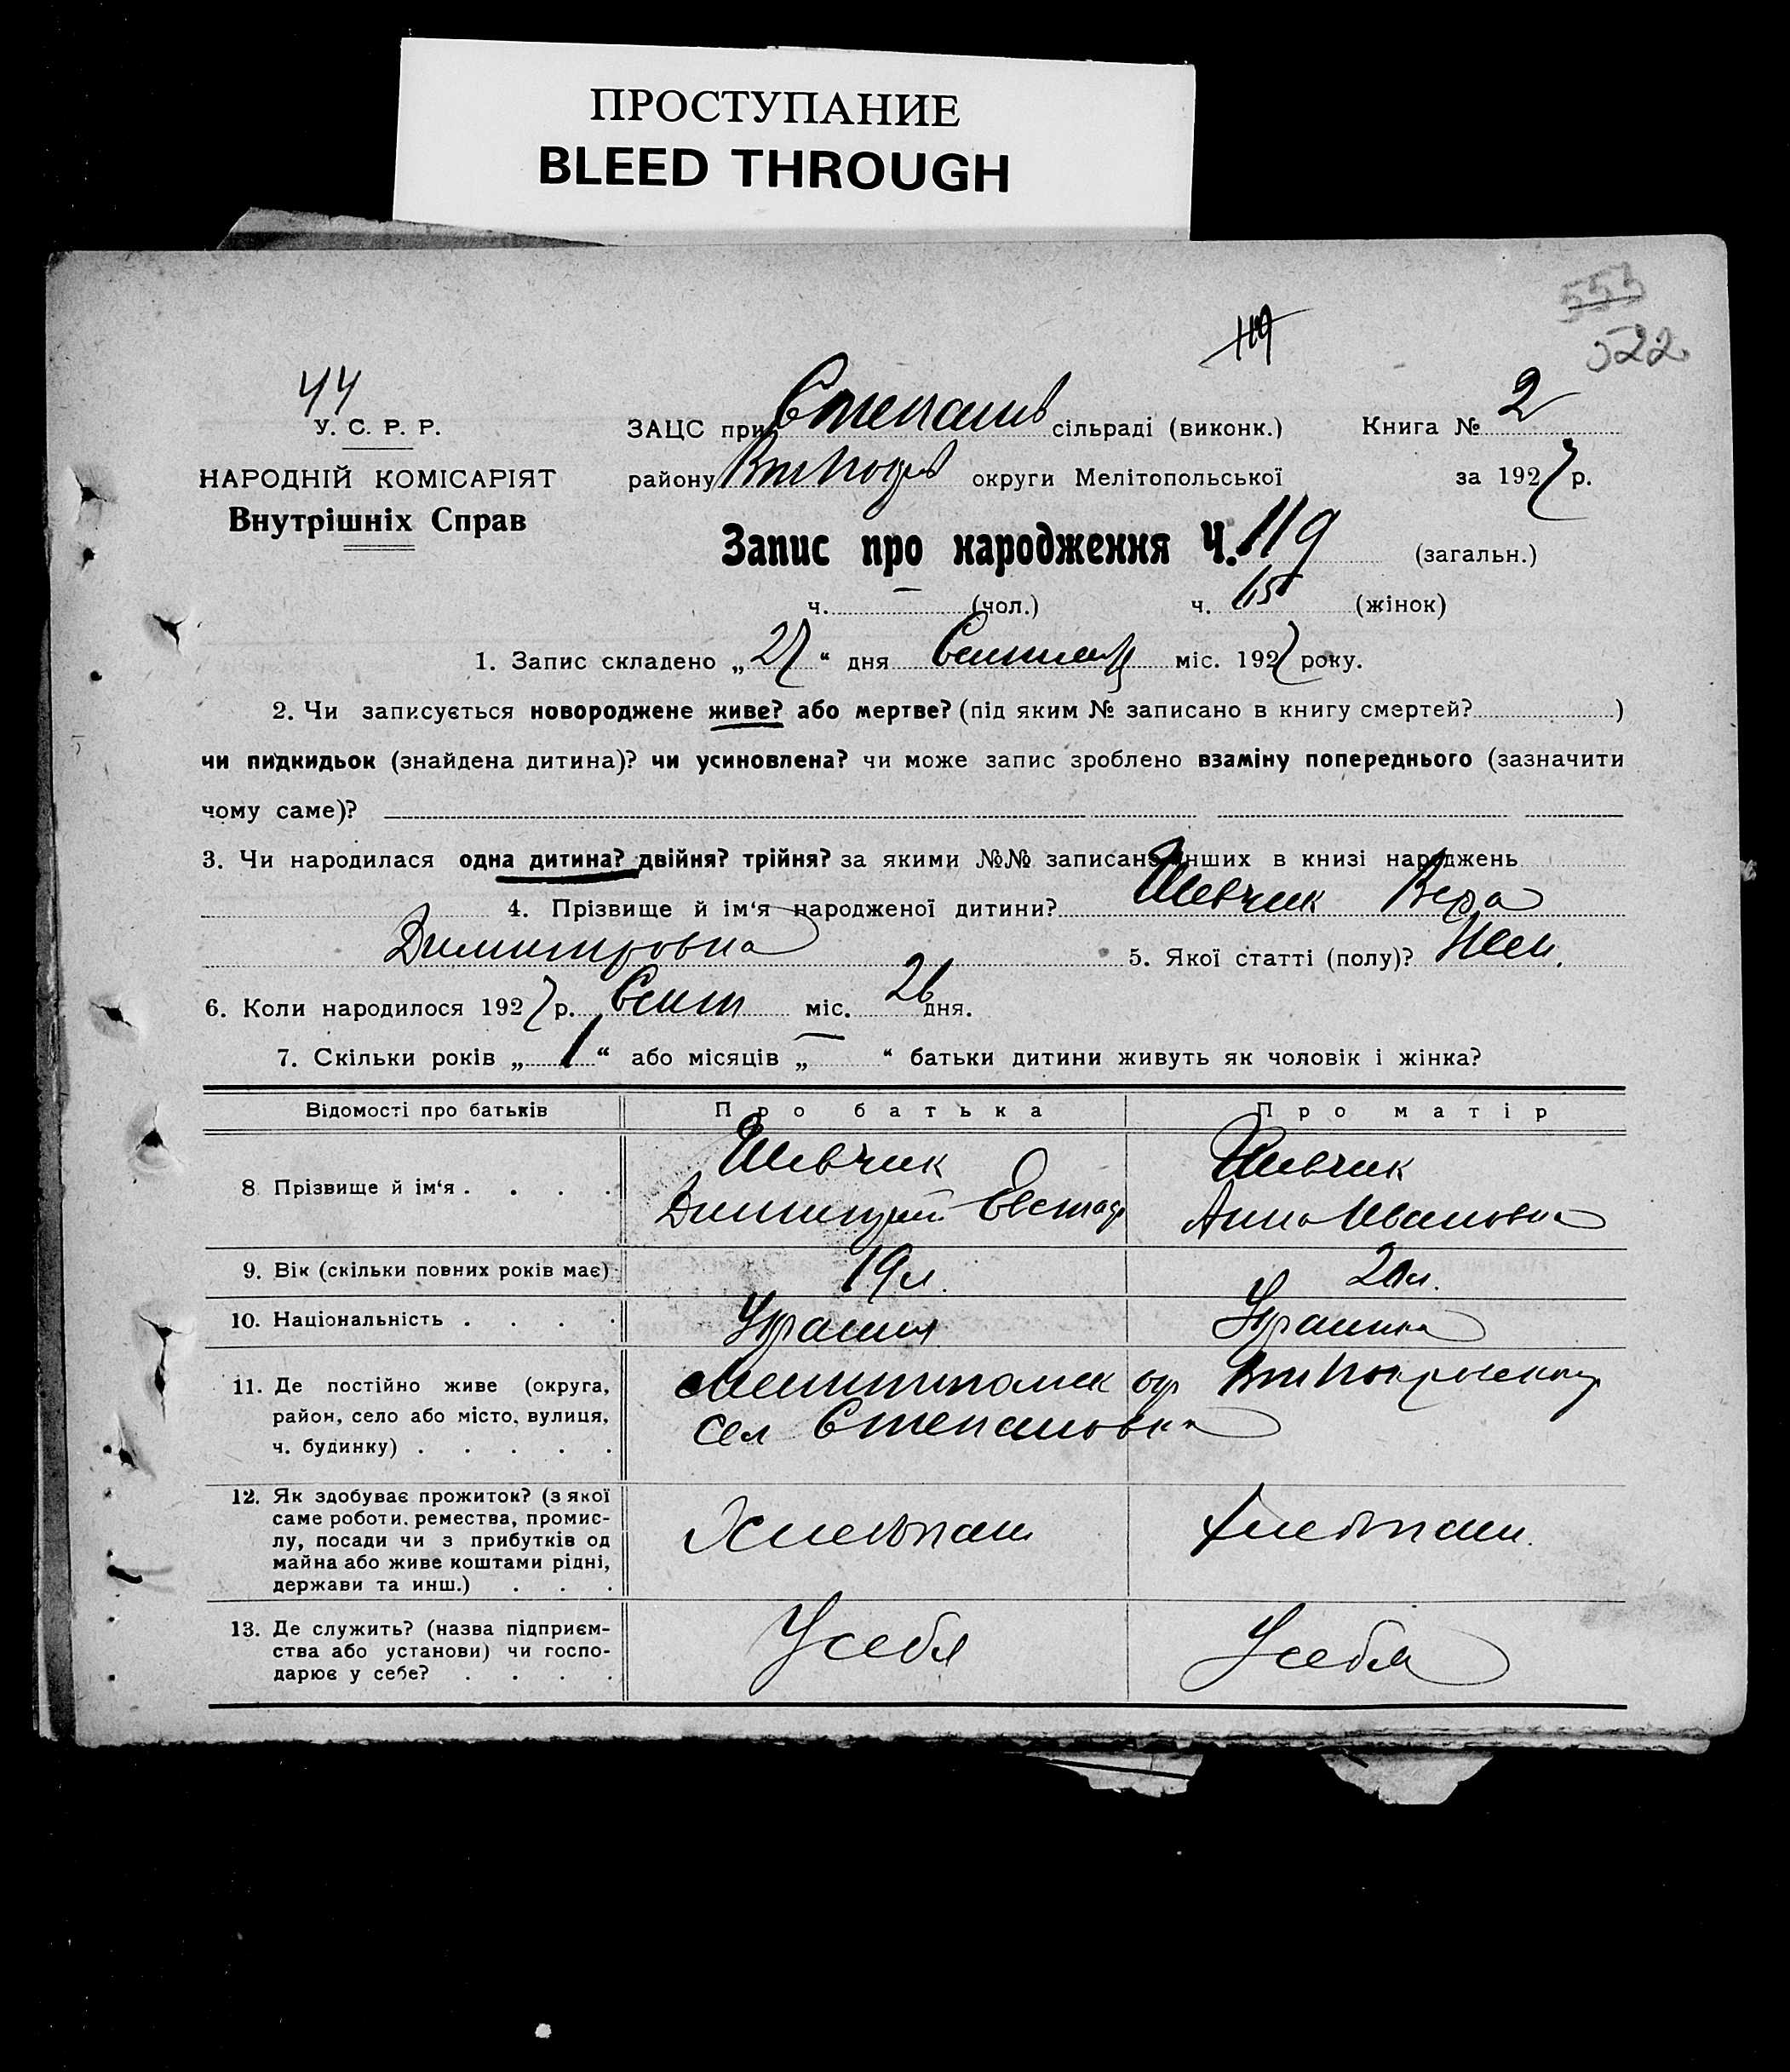 ПРОСТУПАНИЕ
BLEED THROUGH
553
522
119
44
У. С. Р. Р.
НАРОДНІЙ КОМІСАРІЯТ
Внутрішніх Справ
ЗАЦС при Степанів сільраді (виконк.) Книга № 2
району округи Мелітопольської за 1927 р.
Запис про народження Ч. 119 (загальн.)
ч. — (чол.) ч. 65 (жінок)
1. Запис складено „27“ дня міс. 1927 року.
2. Чи записується новороджене живе? або мертве? (під яким № записано в книгу смертей? )
чи пидкидьок (знайдена дитина)? чи усиновлена? чи може запис зроблено взаміну попереднього (зазначити
чому саме)?
3. Чи народилася одна дитина? двійня? трійня? за якими №№ записано інших в книзі народжень
4. Прізвище й ім‘я народженої дитини? Шевчик Вера
Димитровна 5. Якої статті (полу)? Жен.
6. Коли народилося 1927 р. Сент міс. 26 дня.
7. Скільки років „1“ або місяців „—“ батьки дитини живуть як чоловік і жінка?
Відомості про батьків Про батька Про матір
8 Прізвище й ім‘я . . . . Шевчик Шевчик
Димитрий Евстаф Анна Ивановна
9. Вік (скільки повних років має) 19 л. 20 л.
10. Національність . . . . Украинка
11. Де постійно живе (округа,
район, село або місто, вулиця,
ч. будинку) . . . . .
Мелитополск ок
сел Степановка
12. Як здобуває прожиток? (з якої
саме роботи, ремества, промис-
лу, посади чи з прибутків од
майна або живе коштами рідні,
держави та инш.) . . .
Хлебпаш Хлебпаш.
13. Де служить? (назва підприєм-
ства або установи) чи госпо-
дарює у себе? . . . .
У себя У себя